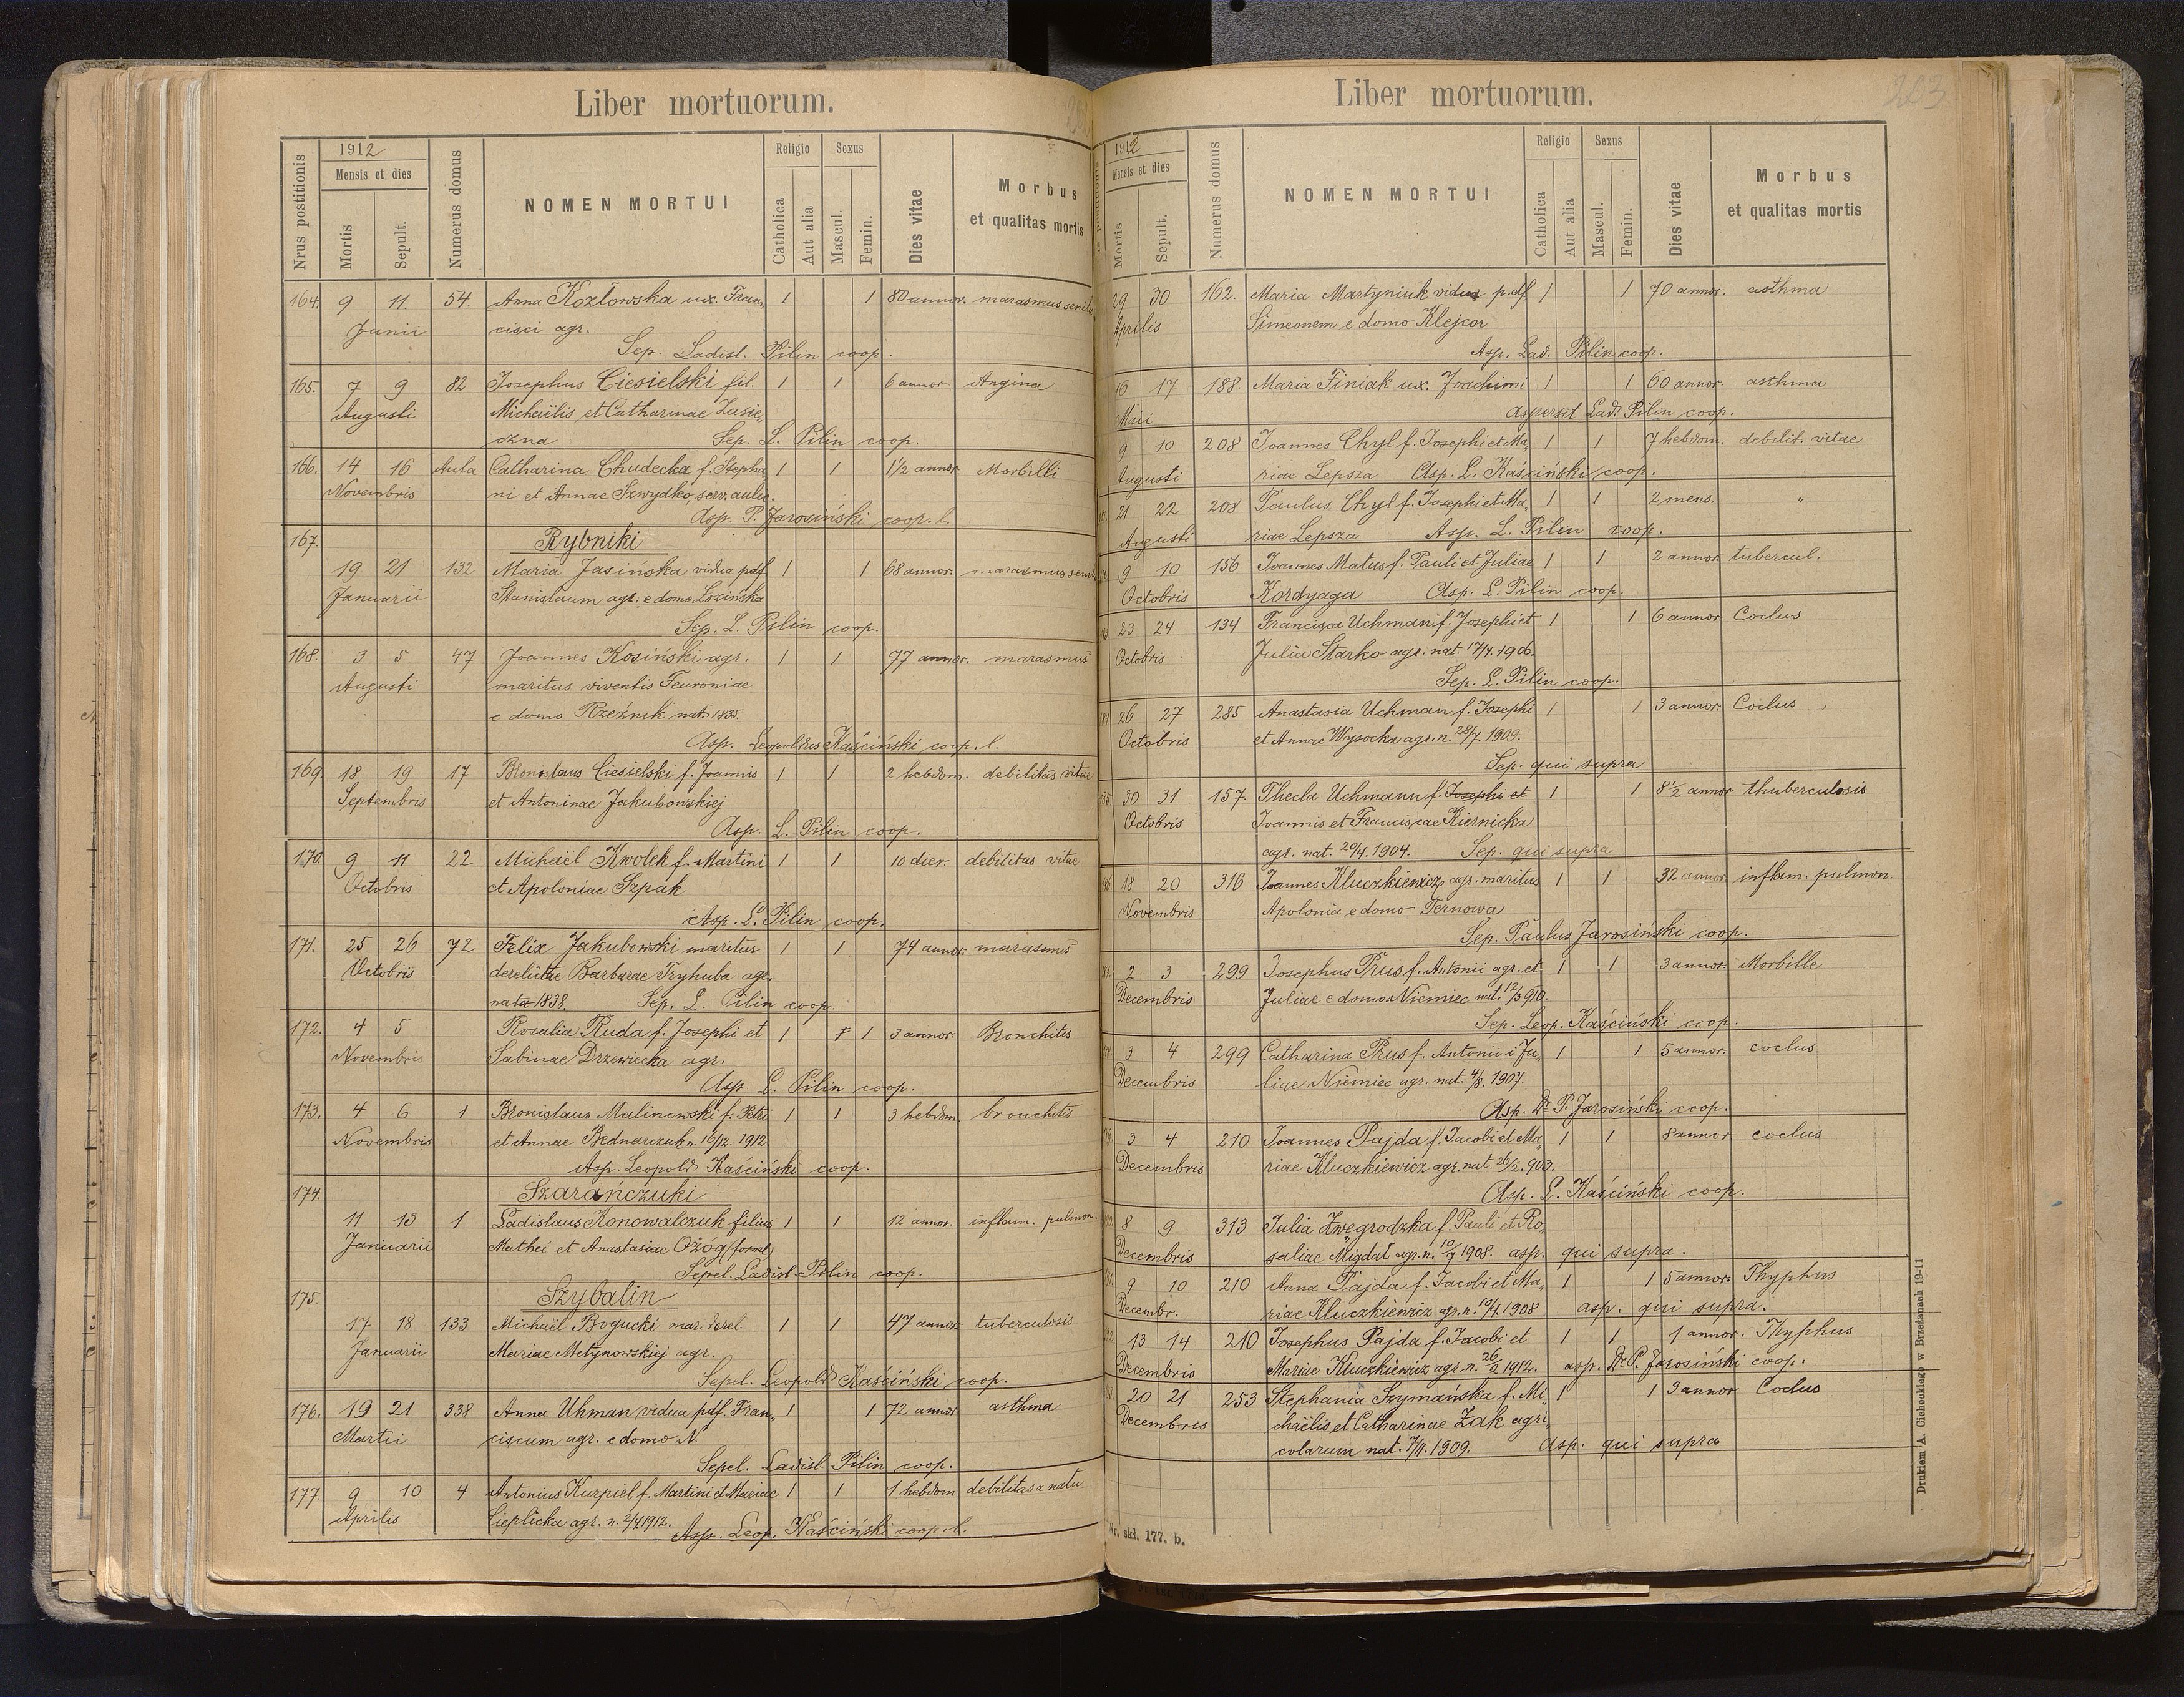 Liber mortuorum.
Nrus postitionis
1912
Mensis et dies
Mortis
Sepult.
Numerus domus
NOMEN MORTUI
Religio
Catholica
Aut alia
Sexus
Mascul.
Femin.
Dies vitae
Morbus
et qualitas mortis
164. 9 11. 54. Anna Kozłowska ux. Fran„ 1 1 80 annor. marasmus senil
Junii cisci agr.
Sep. Ladisl. Pilin coop.
165. 7 9 82 Josephus Ciesielski fil. 1 1 6 annor. Angina
Augusti Michaëlis et Catharinae Zasie„
czna Sep. L. Pilin coop.
166. 14 16 Aula Catharina Chudecka f. Stepha„ 1 1 1½ annor. Morbilli
Novembris ni et Annae Szwydko, serv. aulic.
Asp. P. Jarosiński coop. l.
167. Rybniki
19 21 132 Maria Jasińska vidua pdf 1 1 68 annor. marasmus senil
Januarii Stanislaum agr. e domo Łozińska
Sep. L. Pilin coop.
168. 3 5 47 Joannes Kosiński agr. 1 1 77 annor. marasmus
Augusti maritus viventis Feuroniae
e domo Rzeźnik nat. 1835.
Asp. Leopoldus Kaściński coop. l.
169. 18 19 17 Bronislaus Ciesielski f. Joannis 1 1 2 hebdom. debilitas vitae
Septembris et Antoninae Jakubowskiej
Asp. L. Pilin coop.
170. 9 11 22 Michaël Kwolek f. Martini 1 1 10 dier. debilitas vitae
Octobris et Apoloniae Szpak
Asp. L. Pilin coop.
171. 25 26 72 Felix Jakubowski maritus 1 1 74 annor. marasmus
Octobris derelictae Barbarae Tryhuba agr.
nat 1838. Sep. L. Pilin coop.
172. 4 5 Rosalia Ruda f. Josephi et 1 1 3 annor. Bronchitis
Novembris Sabinae Drzewiecka agr.
Asp. L. Pilin coop.
173. 4 6 1 Bronislaus Malinowski f. Petri 1 1 3 hebdom. bronchitis
Novembris et Annae Bednarczuk n. 16/12. 1912
Asp. Leopold. Kaściński coop.
174. Szarańczuki
11 13 1 Ladislaus Konowalczuk filius 1 1 12 annor. inflam. pulmon.
Januarii Mathei et Anastasiae Ożóg (fornal)
Sepel. Ladisl. Pilin coop.
175. Szybalin
17 18 133 Michaël Bogucki mar. derel. 1 1 47 annor. tuberculosis
Januarii Mariae Metynowskiej agr.
Sepel. Leopold. Kaściński coop.
176. 19 21 338 Anna Uhman vidua pdf. Fran„ 1 1 72 annor. asthma
Martii ciscum agr. e domo N.
Sepel. Ladisl. Pilin coop.
177. 9 10 4 Antonius Kurpiel f. Martini et Mariae 1 1 1 hebdom debilitas a natu
Aprilis Cieplicka agr. n. 2/4 1912. Asp. Leop. Kaściński coop. l.
Liber mortuorum.
203
1912
Mensis et dies
Mortis
Sepult.
Numerus domus
NOMEN MORTUI
Religio
Catholica
Aut alia
Sexus
Mascul.
Femin.
Dies vitae
Morbus
et qualitas mortis
29 30 162. Maria Martyniuk vidua p. df 1 1 70 annor. asthma
Aprilis Simeonem e domo Klejcor
Asp. Lad. Pilin coop.
16 17 188. Maria Finiak ux. Joachimi 1 1 60 annor. asthma
Maii Aspersit Lad. Pilin coop.
9 10 208 Joannes Chyl f. Josephi et Ma„ 1 1 7 hebdom. debilit. vitae
Augusti riae Lepsza Asp. L. Kaściński coop.
21 22 208 Paulus Chyl f. Josephi et Ma„ 1 1 2 mens. "
Augusti riae Lepsza Asp. L. Pilin coop.
9 10 156 Joannes Matus f. Pauli et Juliae 1 1 2 annor. tubercul.
Octobris Kordyaga Asp. L. Pilin coop.
23 24 134 Francisca Uchman f. Josephi et 1 1 6 annor. Coclus
Octobris Julia Starko agr. nat. 17/4. 1906.
Sep. L. Pilin coop.
26 27 285 Anastasia Uchman f. Josephi 1 1 3 annor. Coclus
Octobris et Annae Wysocka agr. n. 28/7. 1909.
Sep. qui supra
30 31 157. Thecla Uchmann f. Josephi et 1 1 8½ annor thuberculosis
Octobris Joannis et Franciscae Kiernicka
agr. nat. 20/4. 1904. Sep. qui supra
18 20 316 Joannes Kluczkiewicz agr. maritus 1 1 32 annor. inflam. pulmon.
Novembris Apolonia e domo Ternowa
Sep. Paulus Jarosiński coop.
2 3 299 Josephus Prus f. Antonii agr. et 1 1 3 annor. Morbille
Decembris Juliae e domo Niemiec nat. 12/3 910.
Sep. Leop. Kaściński coop.
3 4 299 Catharina Prus f. Antonii i Ju„ 1 1 5 annor. coclus
Decembris liae Niemiec agr. nat. 4/8. 1907.
Asp. Dr P. Jarosiński coop.
3 4 210 Joannes Pajda f. Jacobi et Ma„ 1 1 8 annor coclus
Decembris riae Kluczkiewicz agr. nat. 26/2. 903.
Asp. L. Kaściński coop.
8 9 313 Julia Zwęgrodzka f. Pauli et Ro„
Decembris saliae Migdał agr. n. 10/7 1908. asp. qui supra.
9 10 210 Anna Pajda f. Jacobi et Ma„ 1 1 5 annor. Thyphus
Decembr. riae Kluczkiewicz agr. n. 19/4. 1908 asp. qui supra.
13 14 210 Josephus Pajda f. Jacobi et 1 1 1 annor. Thyphus
Decembris Mariae Kluczkiewicz agr. n. 26/2 1912. asp. Dr P. Jarosiński coop.
20 21 253 Stephania Szymańska f. Mi„ 1 1 3 annor Coclus
Decembris chaëlis et Catharinae Żak agri„
colarum nat. 7/11. 1909. Asp. qui supra
Nr. skł. 177. b.
Drukiem A. Cichockiego w Brzeżanach 19-11